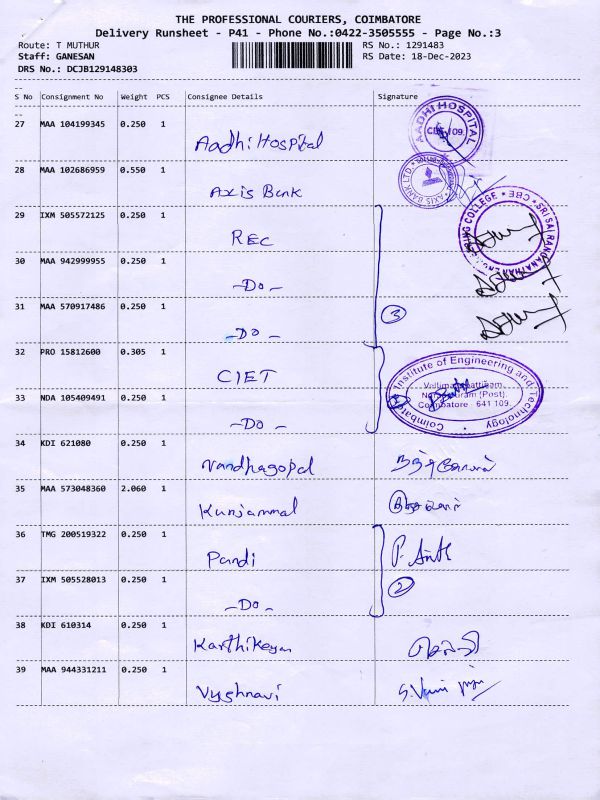 THE PROFESSIONAL COURIERS, COIMBATORE
Delivery Runsheet - P41 - Phone No.:0422-3505555 - Page No.:3
Route: T MUTHUR RS No.: 1291483
Staff: GANESAN RS Date: 18-Dec-2023
DRS No.: DCJB129148303
S No Consignment No Weight PCS Consignee Details Signature
27 MAA 104199345 0.250 1 Aadhi Hospital AADHI HOSPITAL
28 MAA 102686959 0.550 1 Axis Bank AXIS BANK LTD.
29 IXM 505572125 0.250 1 REC SRI SAI RANGANATHAN COLLEGE CBE
30 MAA 942999955 0.250 1 -Do-
31 MAA 570917486 0.250 1 -Do- 3
32 PRO 15812600 0.305 1 CIET Coimbatore Institute of Engineering and Technology
(Post),
Coimbatore - 641 109.
33 NDA 105409491 0.250 1 -Do-
34 KDI 621080 0.250 1 Nandhagopal
35 MAA 573048360 2.060 1 Kunjammal
36 TMG 200519322 0.250 1 Pandi
37 IXM 505528013 0.250 1 -Do- 2
38 KDI 610314 0.250 1 Karthikeyan
39 MAA 944331211 0.250 1 Vyshnavi